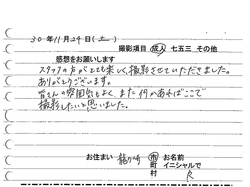 30年11月24日(土)
撮影項目 成人 七五三 その他
感想をお願いします
スタッフの方がとても楽しく撮影させていただきました。
ありがとうございます。
皆さんの雰囲気もよく、また何かあればここで
撮影したいと思いました。
お住まい 龍ヶ崎 市 お名前
町 イニシャルで
村 R